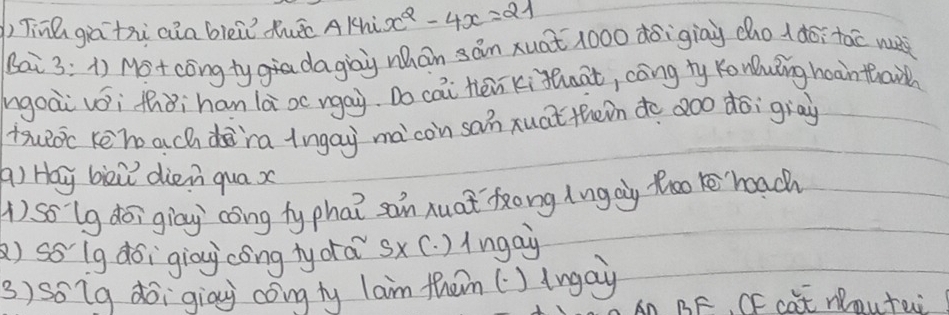 ) Tính giá trị của biểu thức A khi x² - 4x = 21
Bài 3: 1) Một công ty giadagiày nhận sản xuất 1000 đôi giày cho 1 đối tác nước
ngoài với thời hạn là x ngày. Do cải tiến kĩ thuật, công ty ko những hoàn thành
trước kế hoạch đề ra 1 ngày mà còn sản xuất thêm đc 200 đôi giày
a) Hãy biểu diễn qua x
1) Số lg đôi giày công ty phải sản xuất trong 1 ngày theo kế hoạch
2) Số lg đôi giày công ty đã sx (.) 1 ngày
3) Số lg đôi giày công ty làm thêm (.) 1 ngày
AD BE, CF cắt nhau tại